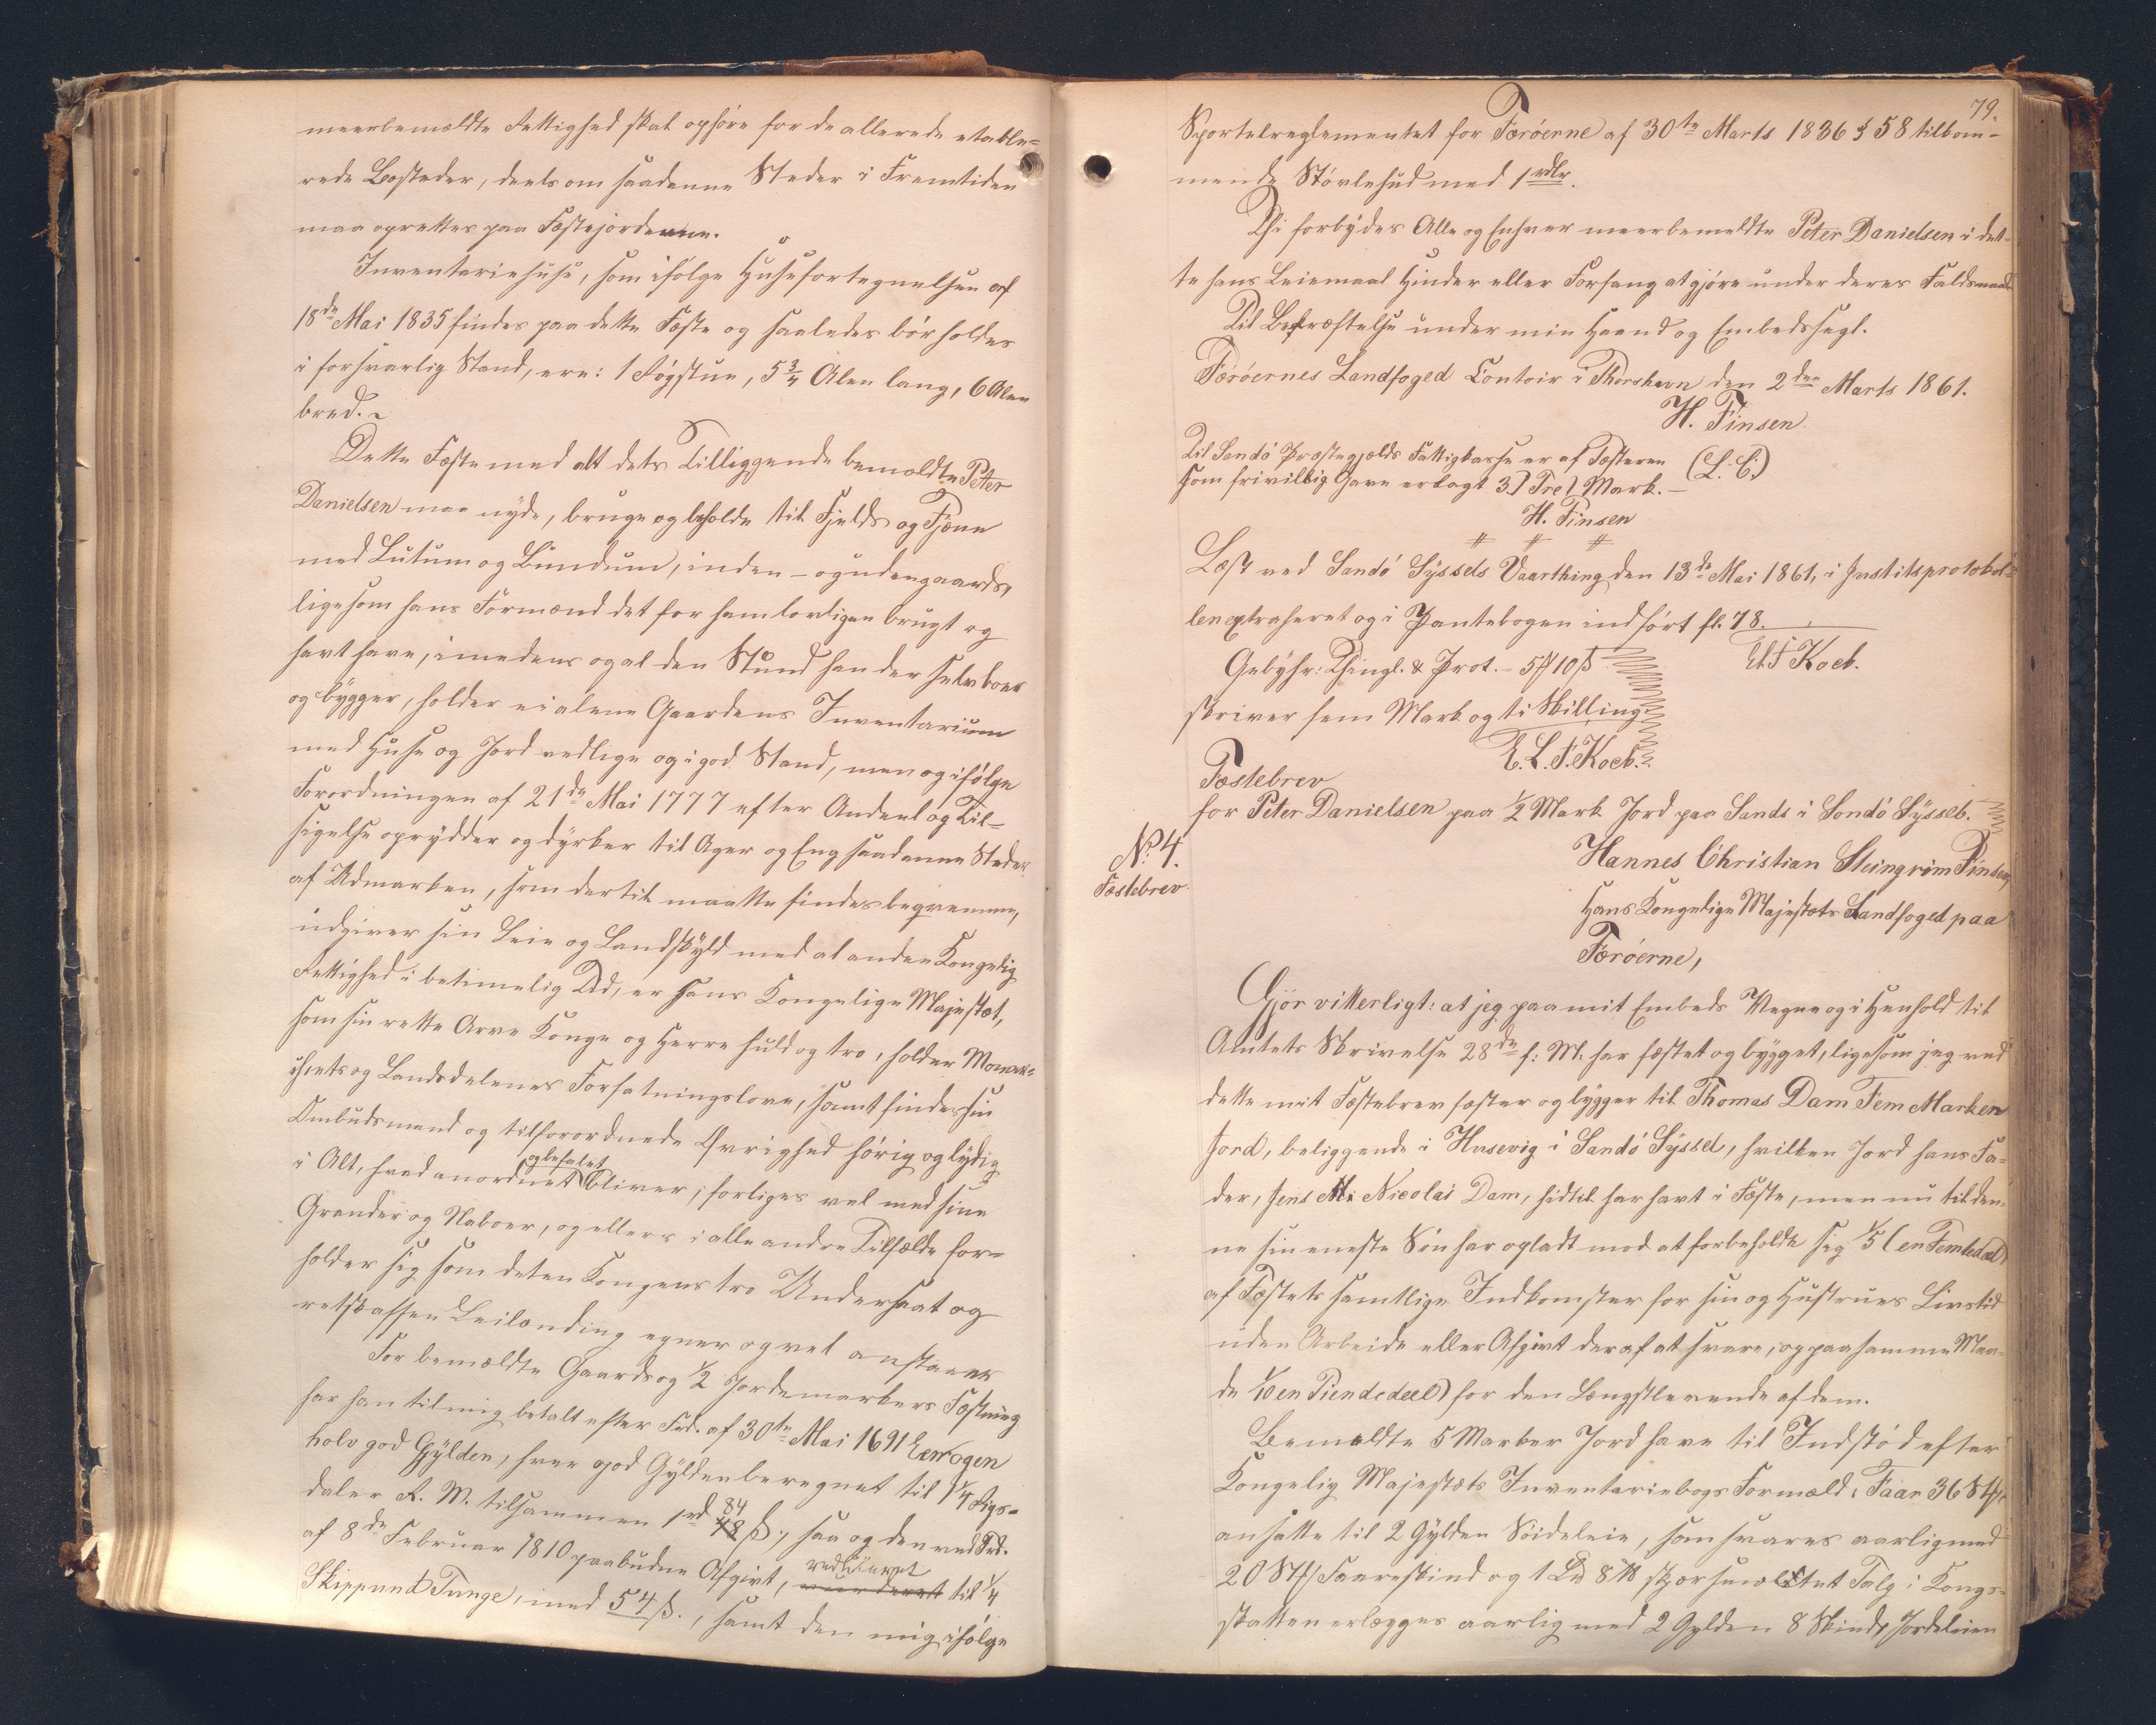 meerbemeldte Rettighed skal ophøre for de allerede etable-
rede Bosteder, deels om saadanne Steder i Fremtiden
maa oprettes paa Fæstejorderne.
Inventariehuse, som ifølge Husefortegnelsen af
18de Mai 1835 findes paa dette Fæste og saaledes bør holdes
i forsvarlig Stand, ere: 1 Røgstue, 5 3/4 Alen lang, 6 Alen
bred. ~
Dette Fæste med alt dets Tilliggende bemældte Peter
Danielsen maa nyde, bruge og beholde til Fjelds og Fjære
med Lutum og Lundum, inden- og udengaards,
ligesom hans Formænd det for ham lovligen brugt og
havt have, imedens og al den Stund han der selv boer
og bygger, holder ei alene Gaardens Inventarium
med Huse og Jord vedlige og i god Stand, men og ifølge
Forordningen af 21de Mai 1777 efter Andeel og Til-
sigelse oprydder og dyrker til Ager og Eng saadanne Steder
af Udmarken, som dertil maatte findes beqvemme,
udgiver sin Leie og Landskyld med al anden Kongelig
Rettighed i betimelig Tid, er Hans Kongelige Majestæt,
som sin rette Arve Konge og Herre huld og tro, holder Monar-
chiets og Landsdelenes Forfatningslove, samt findes sin
Ombudsmand og tilforordnede Øvrighed hørig og lydig
i Alt, hvad anordnet og befalet bliver, forliges vel med sine
Grander og Naboer, og ellers i alle andre Tilfælde for-
holder sig som det en Kongens tro Undersaat og
retskaffen Leilænding egner og vel anstaaer
For bemældte Gaards og 1/2 Jordemarkers Fæstning
har han til mig betalt efter Frd. af 30te Mai 1691 Een og en
halv god Gylden, hver god Gylden beregnet til 1 1/4 Rigs-
daler R. M. tilsammen 1rd 84 48 ß., saa og den ved Frd.
af 8de Februar 1810 paabudne Afgivt, vurderet til 1/4
Skippund Tunge, med 54 ß., samt den mig ifølge
79.
Sportelreglementet for Færøerne af 30te Marts 1836 § 58 tilkom-
mende Støvlehud med 1 rdlr.
Thi forbydes Alle og Enhver meerbemeldte Peter Danielsen i det-
te hans Leiemaal Hinder eller Forfang at gjøre under deres Faldsmaal
Til Bekræftelse under min Haand og Embedssegl.
Færøernes Landfoged Contoir i Thorshavn den 2den Marts 1861.
H. Finsen.
Til Sandø Præstegjælds Fattigkasse er af Fæsteren (L. S.)
som frivillig Gave erlagt 3 } Tre { Mark. —
H. Finsen
# # #
Læst ved Sandø Syssels Vaarthing den 13de Mai 1861, i Justitsprotokol-
len extraheret og i Pantebogen indført fl. 78.
Gebyhr: Thingl. & Prot. – 5 ₥ 10 ß ELF Koch.
skriver fem Mark og ti Skilling
E. L. F. Koch.
Fæstebrev
for Peter Danielsen paa 1/2 Mark Jord paa Sands i Sandø Syssel.
No 4.
Fæstebrev
Hannes Christian Steingrim Finsen,
Hans Kongelige Majestæts Landfoged paa
Færøerne,
Gjør vitterligt: at jeg paa mit Embeds Vegne og i Henhold til
Amtets Skrivelse 28de f: M. har fæstet og bygget, ligesom jeg ved
dette mit Fæstebrev fæster og bygger til Thomas Dam Fem Marker
Jord, beliggende i Husevig i Sandø Syssel, hvilken Jord hans Fa-
der, Jens Nicolai Dam, hidtil har havt i Fæste, men nu til den-
ne sin eneste Søn har opladt mod at forbeholde sig 1/5 (en Femtedeel)
af Fæstets samtlige Indkomster for sin og Hustrues Livstid
uden Arbeide eller Afgivt deraf at svare, og paa samme Maa-
de 1/10 en Tiendedeel) for den Længstlevende af dem.
Bemældte 5 Marker Jord have til Indstød efter
Kongelig Majestæts Inventariebogs Formæld: Faar 36 Stk,
ansatte til 2 Gylden Soideleie, som svares aarlig med
20 Stk Faareskind og 1 Ld 8 ℔ skjær smeltet Talg i Konge-
skatten erlægges aarlig med 2 Gylden 8 Skind, Jordeleien